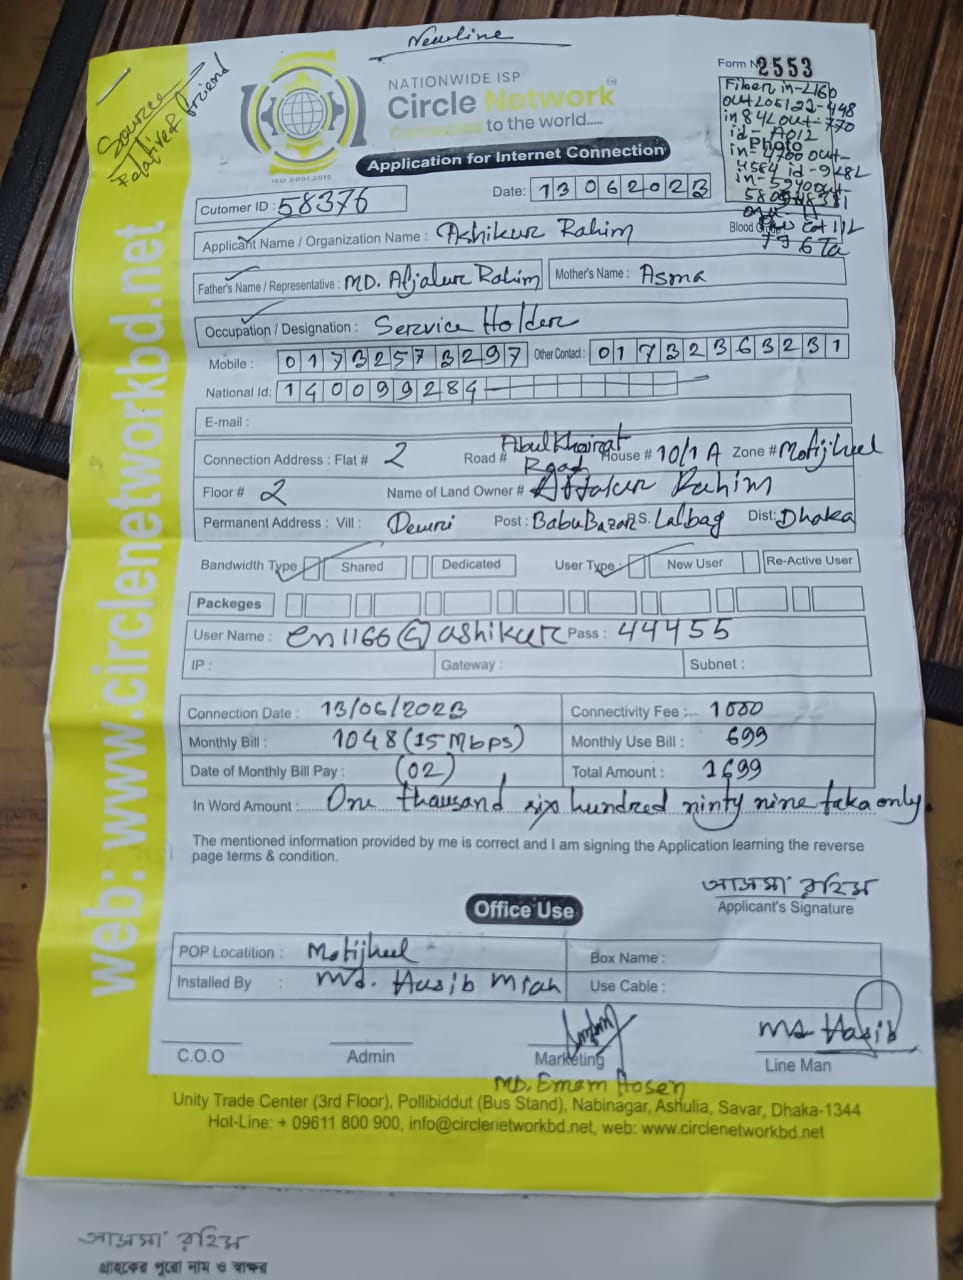 Newline
Source
Relative & friend
NATIONWIDE ISP
Circle Network
to the world.....
ISO 9001:2015
Application for Internet Connection
Form N 2553
Fiber in-2160
out 205122-448
in 842 out-770
id-A012
Photo
in-4700 out-
4564 id-9282
in-5940 out-
Cutomer ID : 58376
Date: 13062023
Applicant Name / Organization Name : Ashikur Rahim
Blood
Father's Name / Representative : MD. Afjalur Rahim
Mother's Name : Asma
Occupation / Designation : Service Holder
Mobile : 01732573297
Other Contact : 01732363231
National Id: 140099284
E-mail :
Connection Address : Flat # 2 Road # Abul Khairat Road House # 10/1 A Zone # Motijheel
Floor # 2 Name of Land Owner # Afjalur Rahim
Permanent Address : Vill : Deuri Post : BabuBazar P.S. Lalbag Dist: Dhaka
Bandwidth Type Shared Dedicated User Type : New User Re-Active User
Packeges
User Name : en1166@ashikur Pass : 44455
IP : Gateway : Subnet :
Connection Date : 13/06/2023 Connectivity Fee : 1000
Monthly Bill : 1048 (15 Mbps) Monthly Use Bill : 699
Date of Monthly Bill Pay : (02) Total Amount : 1699
In Word Amount : One thausand six hundred ninty nine taka only.
The mentioned information provided by me is correct and I am signing the Application learning the reverse
page terms & condition.
আসমা রহিম
Applicant's Signature
Office Use
POP Locatition : Motijheel Box Name :
Installed By : Md. Hasib Miah Use Cable :
C.O.O Admin Marketing
Md. Hasib
Line Man
MD. Emam Hosen
Unity Trade Center (3rd Floor), Pollibiddut (Bus Stand), Nabinagar, Ashulia, Savar, Dhaka-1344
Hot-Line: + 09611 800 900, info@circlenetworkbd.net, web: www.circlenetworkbd.net
web: www.circlenetworkbd.net
আসমা রহিম
গ্রাহকের পুরো নাম ও স্বাক্ষর